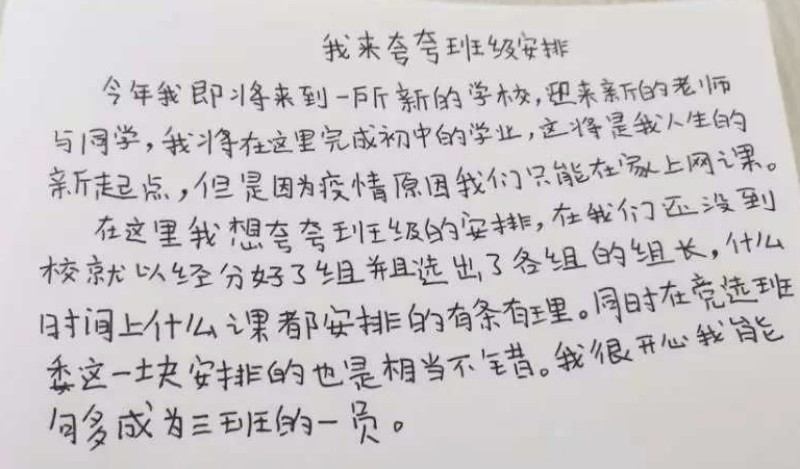 我来夸夸班级安排
今年我即将来到一所新的学校,迎来新的老师
与同学,我将在这里完成初中的学业,这将是我人生的
新起点,但是因为疫情原因我们只能在家上网课。
在这里我想夸夸班级的安排,在我们还没到
校就以经分好了组并且选出了各组的组长,什么
时间上什么课都安排的有条有理。同时在竞选班
委这一块安排的也是相当不错。我很开心我能
句多成为三班的一员。